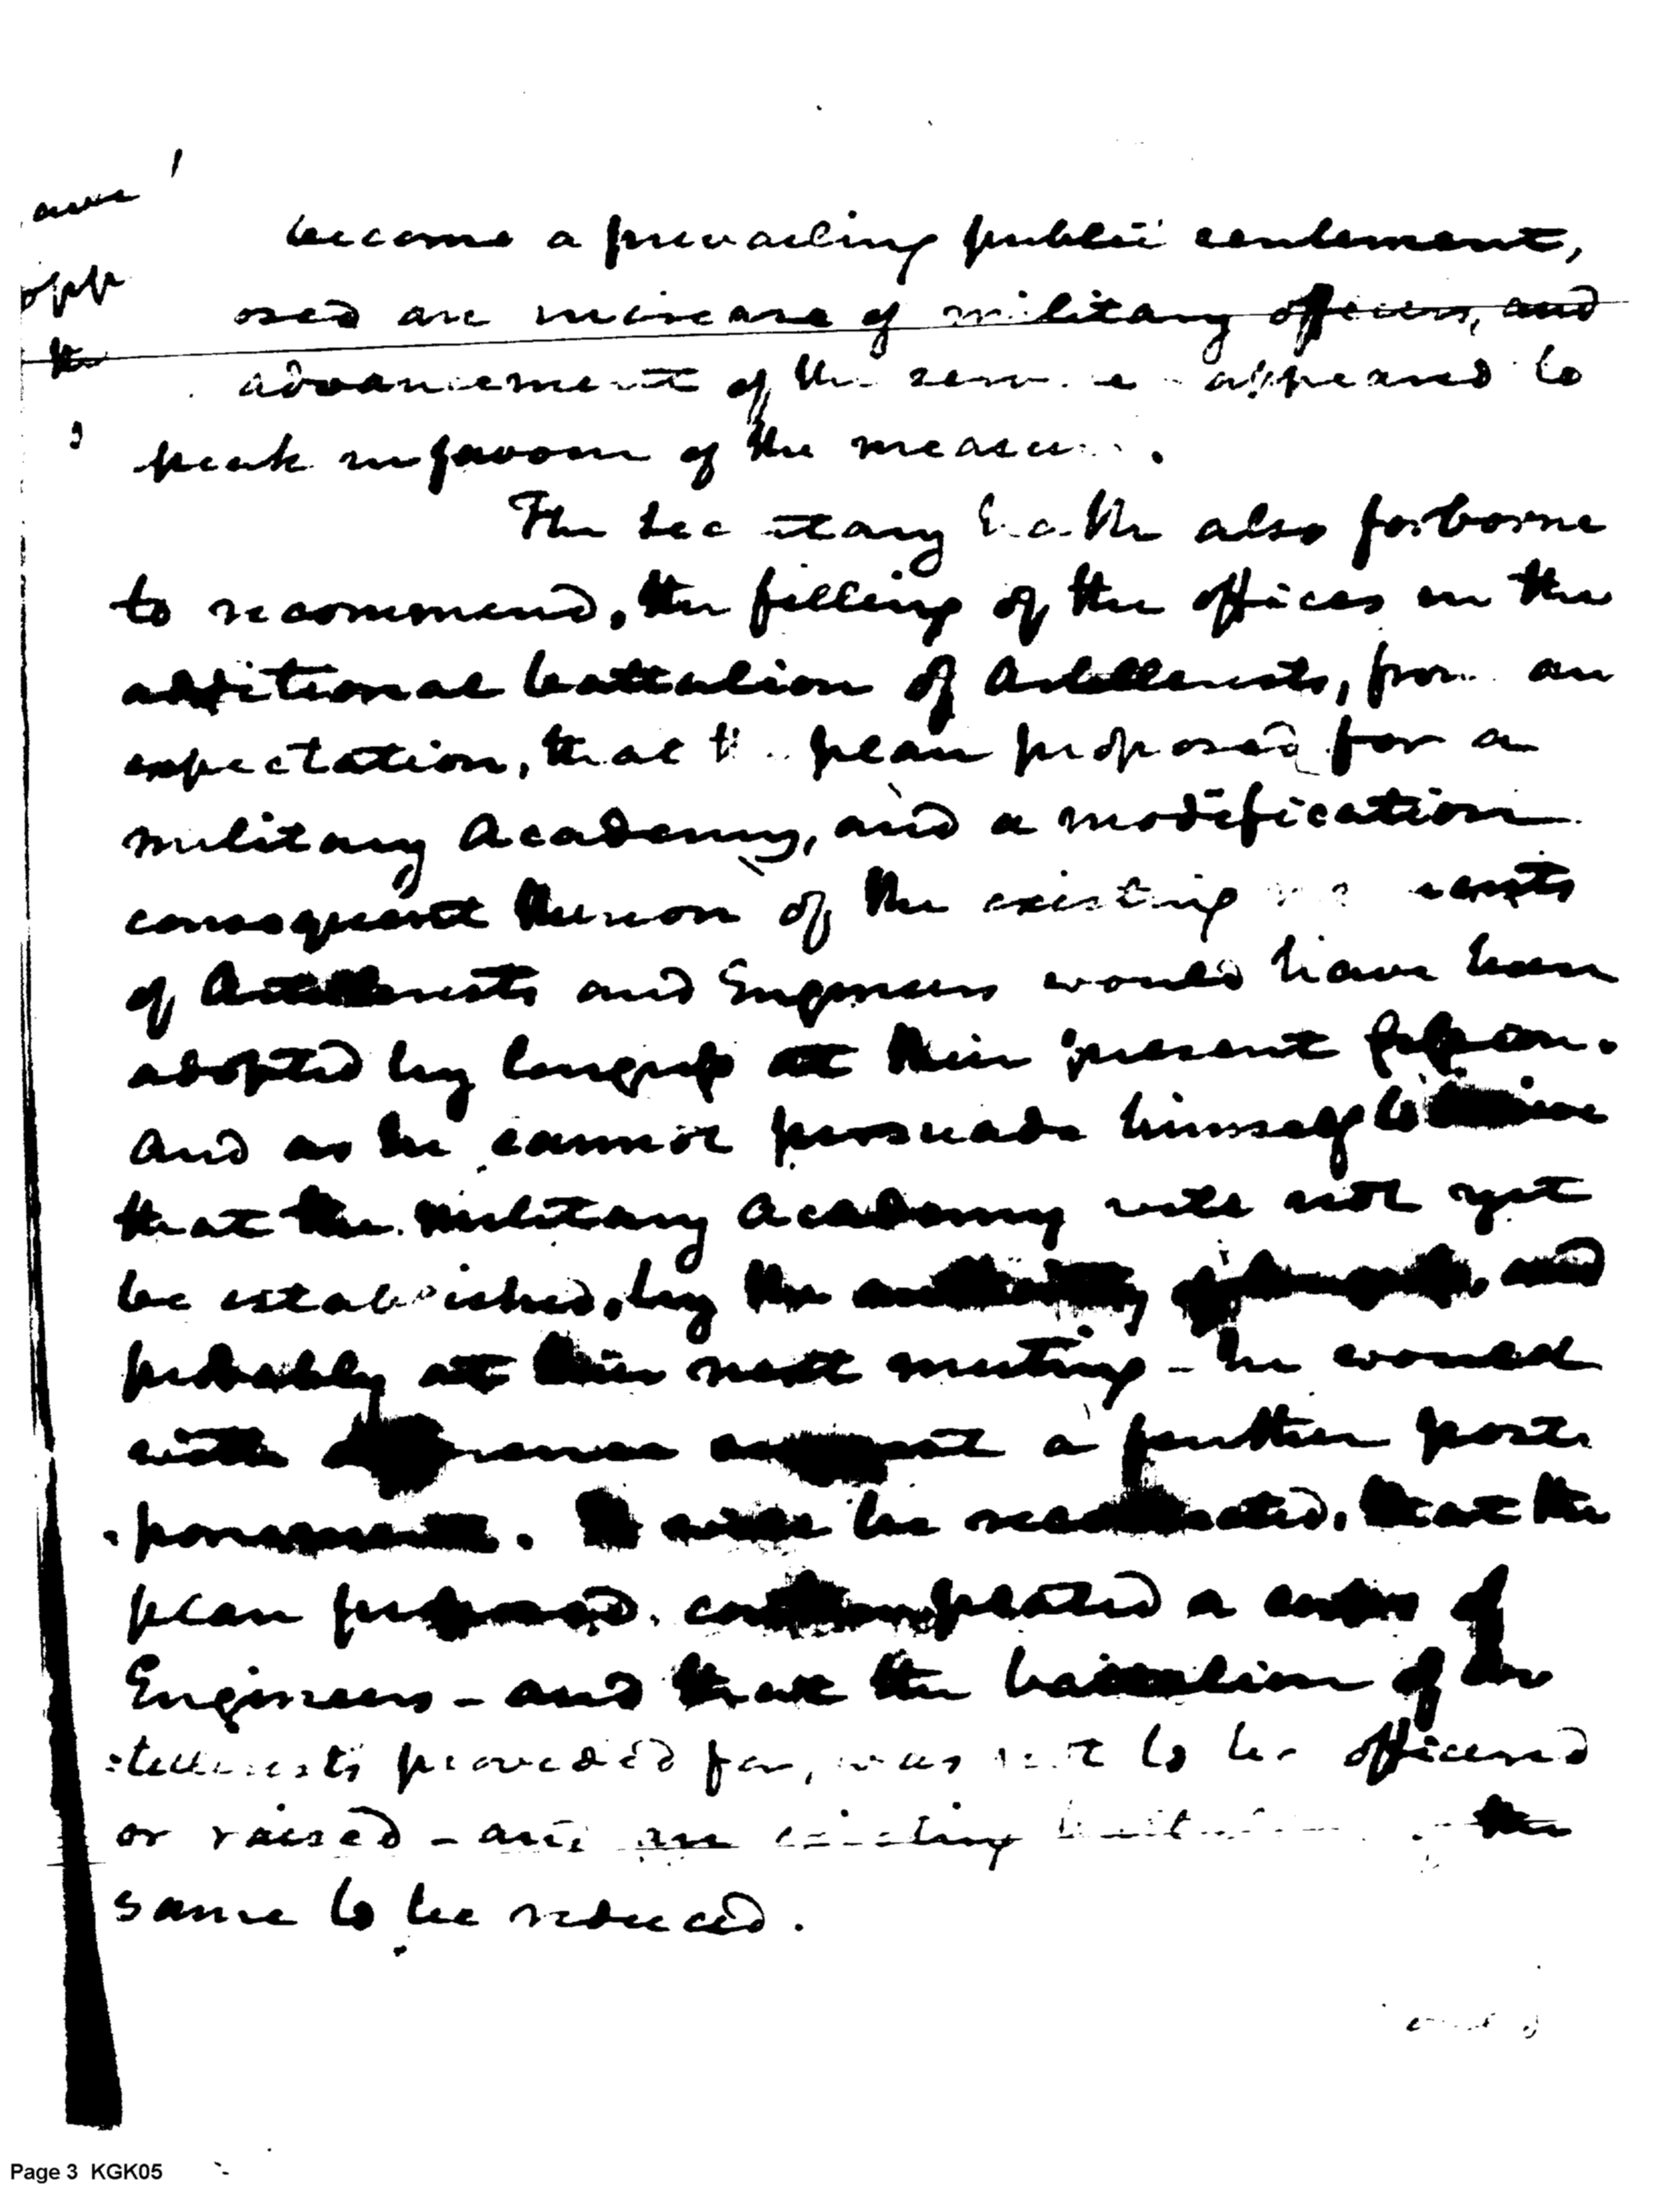 become a prevailing public sentiment,
opp osed an increase of military officers, and
the advancement of the service appeared to
speak in favour of the measure.
The Secretary hath also forborne
to recommend, the filling of the offices in the
additional battalion of Artillerists, from an
expectation, that the plan proposed for a
military Academy, and a modification
consequent thereon of the existing
of Artillerists and Engineers would have been
adopted by Congress at their present session.
And as he cannot persuade himself to
that the military Academy will not yet
be established, by the authority of Congress, and
probably at their next meeting - he would
with a further post
ponement. It will be recollected, that the
plan proposed, contemplated a corps of
Engineers - and that the battalion of Ar
tillerists provided for, was not to be officered
or raised - and an existing battalion of the
same to be reduced.
Page 3 KGK05